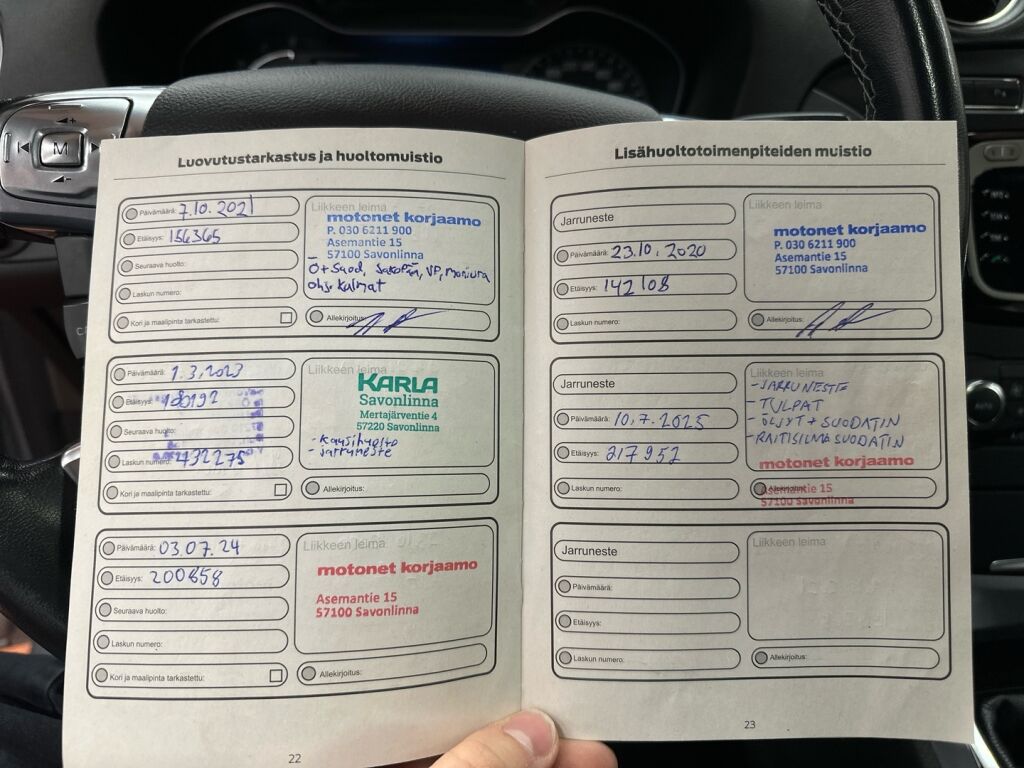 M
Luovutustarkastus ja huoltomuistio
Päivämäärä: 7.10.2021
Etäisyys: 156365
Seuraava huolto:
Laskun numero:
Kori ja maalipinta tarkastettu:
Liikkeen leima
motonet korjaamo
P. 030 6211 900
Asemantie 15
57100 Savonlinna
Ö+Suod,
Allekirjoitus:
Päivämäärä: 1.3.2023
Etäisyys: 180192
Seuraava huolto:
Laskun numero: 432275
Kori ja maalipinta tarkastettu:
Liikkeen leima
KARLA
Savonlinna
Mertajärventie 4
57220 Savonlinna
- Kausihuolto
- Jarruneste
Allekirjoitus:
Päivämäärä: 03.07.24
Etäisyys: 200858
Seuraava huolto:
Laskun numero:
Kori ja maalipinta tarkastettu:
Liikkeen leima
motonet korjaamo
Asemantie 15
57100 Savonlinna
Allekirjoitus:
22
Lisähuoltotoimenpiteiden muistio
Jarruneste
Päivämäärä: 23.10.2020
Etäisyys: 142108
Laskun numero:
Liikkeen leima
motonet korjaamo
P. 030 6211 900
Asemantie 15
57100 Savonlinna
Allekirjoitus:
Jarruneste
Päivämäärä: 10.7.2025
Etäisyys: 217952
Laskun numero:
Liikkeen leima
- JARRUNESTE
- TULPAT
- ÖLJYT + SUODATIN
- RAITISILMASUODATIN
motonet korjaamo
Allekirjoitus:
Asemantie 15
57100 Savonlinna
Jarruneste
Päivämäärä:
Etäisyys:
Laskun numero:
Liikkeen leima
Allekirjoitus:
23